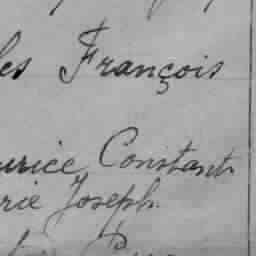 les François
urice Constant
rie Joseph